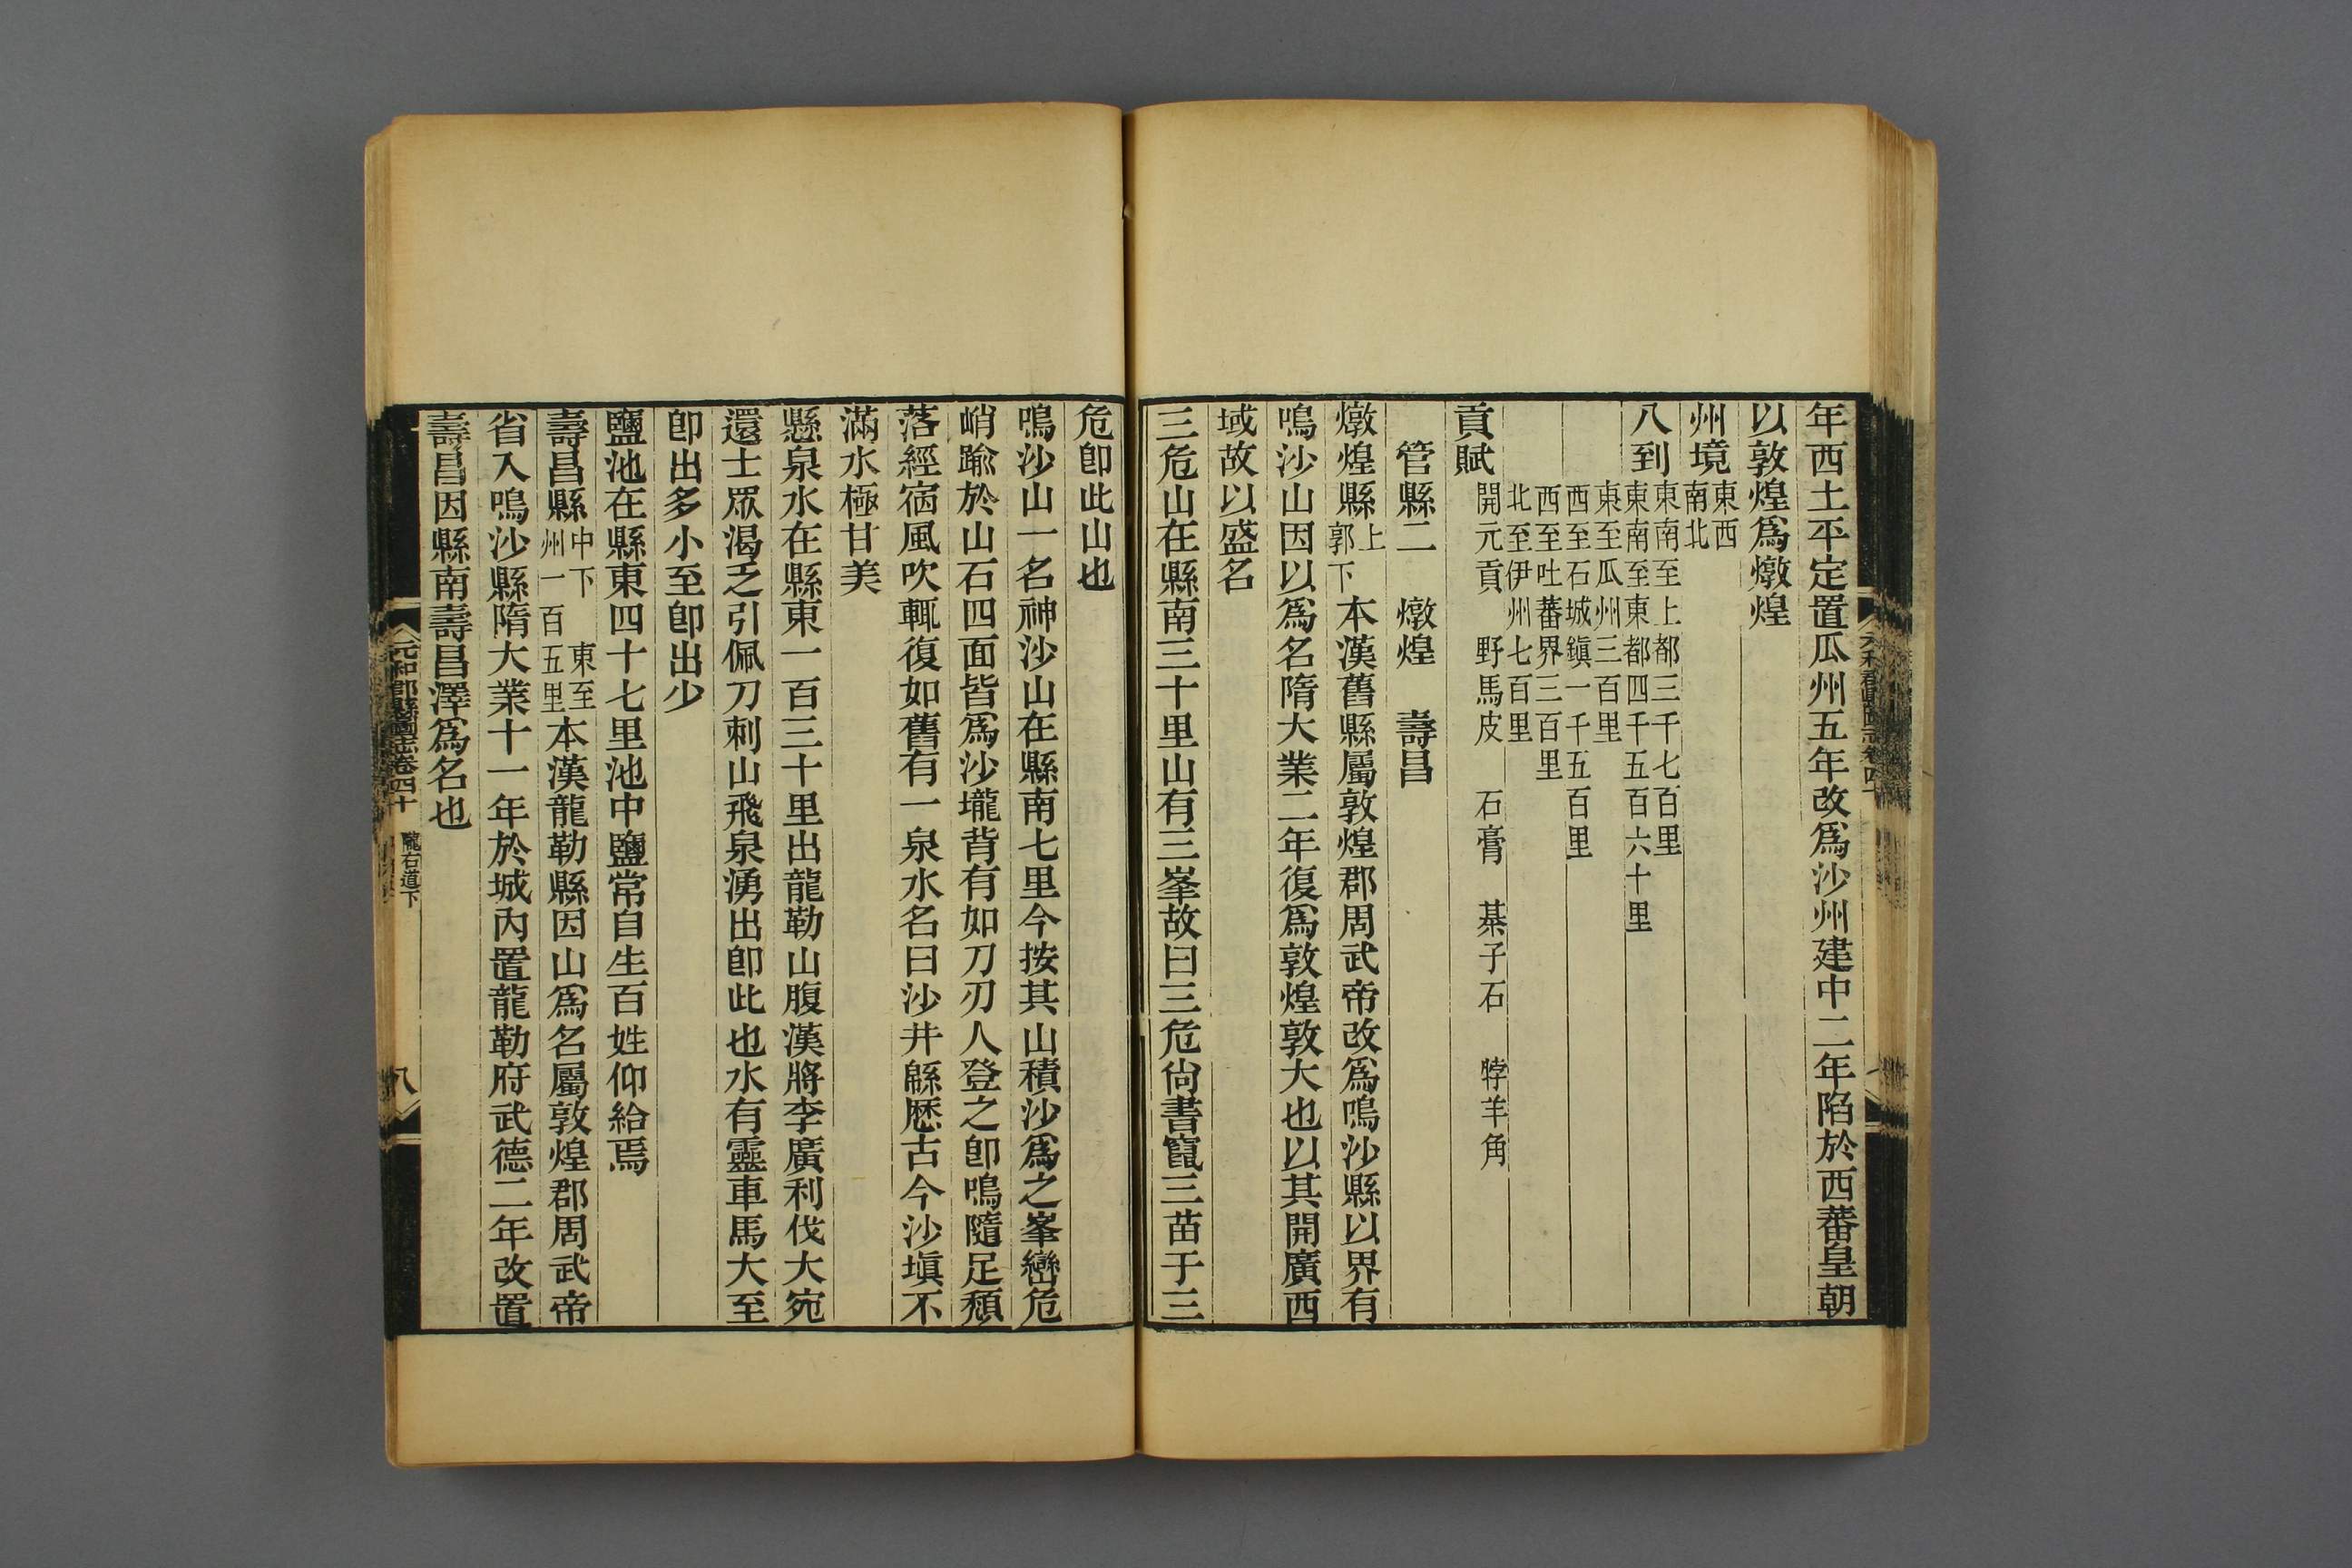 年西土平定置瓜州五年改爲沙州建中二年陷於西蕃皇朝
以敦煌爲燉煌
州境東西
南北
八到東南至上都三千七百里
東南至東都四千五百六十里
東至瓜州三百里
西至石城鎭一千五百里
西至吐蕃界三百里
北至伊州七百里
貢賦
開元貢 野馬皮 石膏 棊子石 㹀羊角
管縣二 燉煌 壽昌
燉煌縣上
郭下
本漢舊縣屬敦煌郡周武帝改爲鳴沙縣以界有
鳴沙山因以爲名隋大業二年復爲敦煌敦大也以其開廣西
域故以盛名
三危山在縣南三十里山有三峯故曰三危尙書竄三苗于三
危卽此山也
鳴沙山一名神沙山在縣南七里今按其山積沙爲之峯巒危
峭踰於山石四面皆爲沙壠背有如刀刃人登之卽鳴隨足頹
落經宿風吹輒復如舊有一泉水名曰沙井緜歷古今沙塡不
滿水極甘美
懸泉水在縣東一百三十里出龍勒山腹漢將李廣利伐大宛
還士眾渴乏引佩刀刺山飛泉湧出卽此也水有靈車馬大至
卽出多小至卽出少
鹽池在縣東四十七里池中鹽常自生百姓仰給焉
壽昌縣中下 東至
州一百五里
本漢龍勒縣因山爲名屬敦煌郡周武帝
省入鳴沙縣隋大業十一年於城內置龍勒府武德二年改置
壽昌因縣南壽昌澤爲名也
元和郡縣圖志卷四十 隴右道下 八